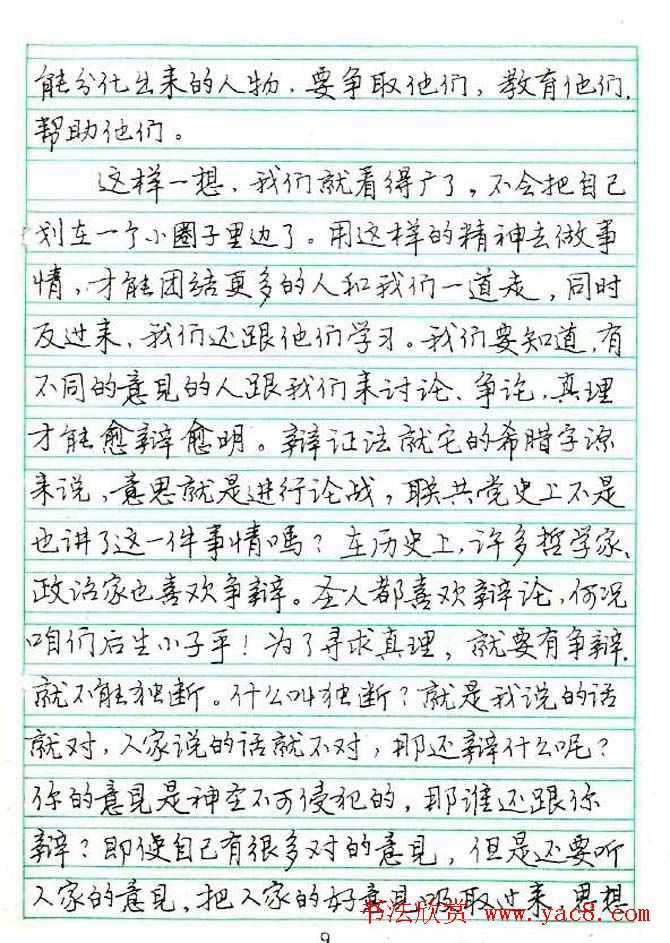 能分化出来的人物，要争取他们，教育他们，
帮助他们。
这样一想，我们就看得广了，不会把自己
划在一个小圈子里边了。用这样的精神去做事
情，才能团结更多的人和我们一道走，同时
反过来，我们还跟他们学习。我们要知道，有
不同的意见的人跟我们来讨论、争论，真理
才能愈辩愈明。辩证法就它的希腊字源
来说，意思就是进行论战，联共党史上不是
也讲了这一件事情吗？在历史上，许多哲学家、
政治家也喜欢争辩。圣人都喜欢辩论，何况
咱们后生小子乎！为了寻求真理，就要有争辩，
就不能独断。什么叫独断？就是我说的话
就对，人家说的话就不对，那还辩什么呢？
你的意见是神圣不可侵犯的，那谁还跟你
辩？即使自己有很多对的意见，但是还要听
人家的意见，把人家的好意见吸取过来，思想
书法欣赏 www.yac8.com
9